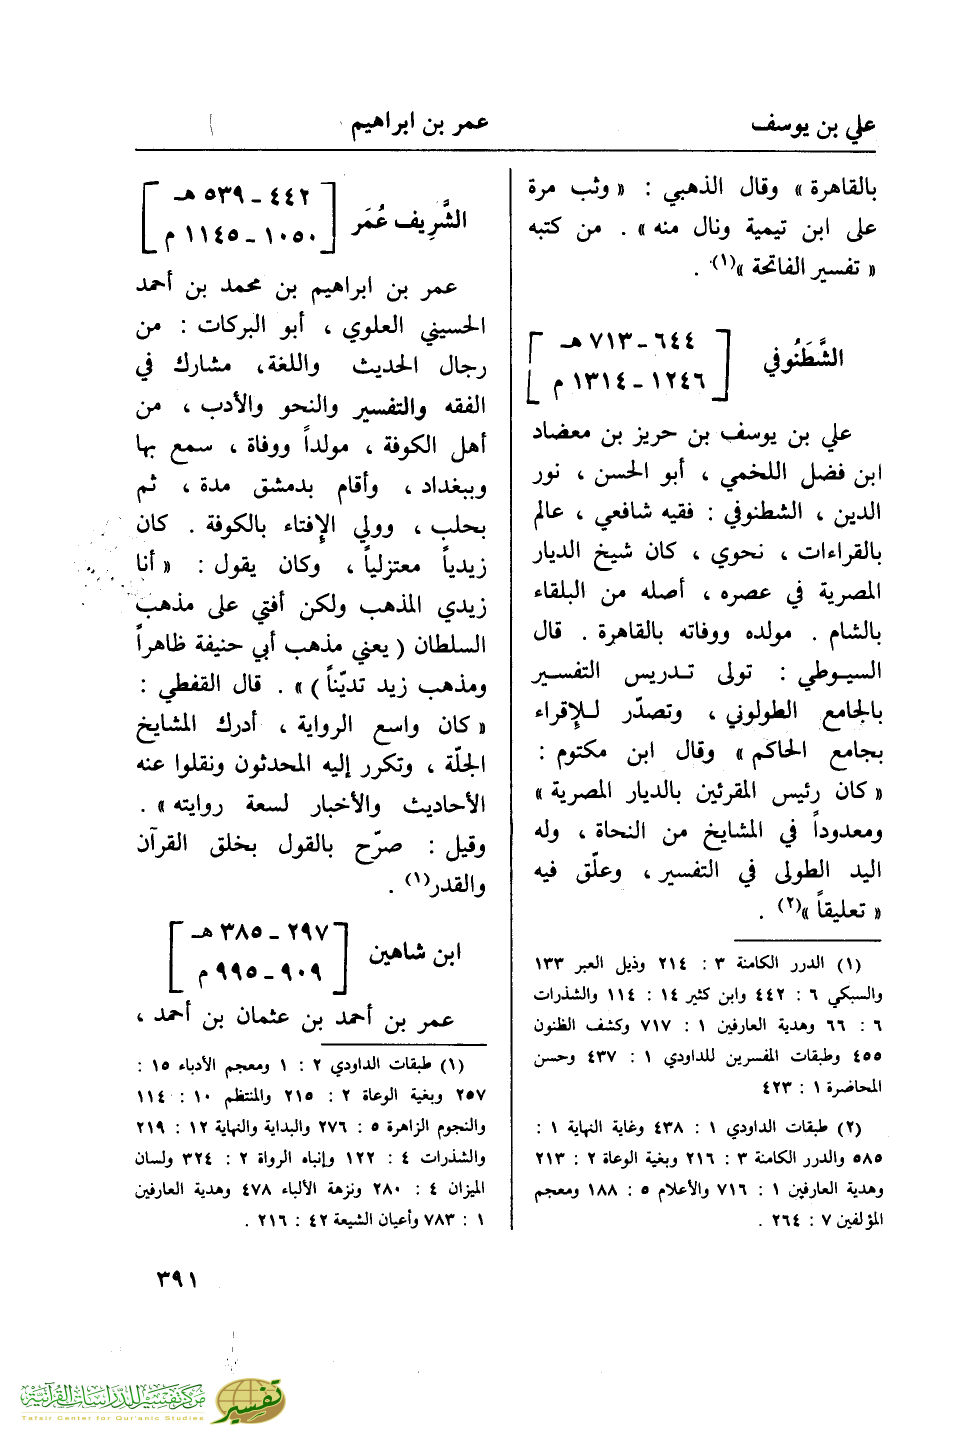 علي بن يوسف
عمر بن ابراهيم
بالقاهرة » وقال الذهبي : « وثب مرة
على ابن تيمية ونال منه » . من كتبه
« تفسير الفاتحة »(١) .
الشَّطَنُوفي
٦٤٤ ـ ٧١٣ هـ
١٢٤٦ ـ ١٣١٤ م
علي بن يوسف بن حريز بن معضاد
ابن فضل اللخمي ، أبو الحسن ، نور
الدين ، الشطنوفي : فقيه شافعي ، عالم
بالقراءات ، نحوي ، كان شيخ الديار
المصرية في عصره ، أصله من البلقاء
بالشام . مولده ووفاته بالقاهرة . قال
السيوطي : تولى تدريس التفسير
بالجامع الطولوني ، وتصدّر للإقراء
بجامع الحاكم » وقال ابن مكتوم :
« كان رئيس المقرئين بالديار المصرية »
ومعدوداً في المشايخ من النحاة ، وله
اليد الطولى في التفسير ، وعلّق فيه
« تعليقاً »(٢) .
(١) الدرر الكامنة ٣ : ٢١٤ وذيل العبر ١٣٣
والسبكي ٦ : ٤٤٢ وابن كثير ١٤ : ١١٤ والشذرات
٦ : ٦٦ وهدية العارفين ١ : ٧١٧ وكشف الظنون
٤٥٥ وطبقات المفسرين للداودي ١ : ٤٣٧ وحسن
المحاضرة ١ : ٤٢٣
(٢) طبقات الداودي ١ : ٤٣٨ وغاية النهاية ١ :
٥٨٥ والدرر الكامنة ٣ : ٢١٦ وبغية الوعاة ٢ : ٢١٣
وهدية العارفين ١ : ٧١٦ والأعلام ٥ : ١٨٨ ومعجم
المؤلفين ٧ : ٢٦٤ .
الشَّرِيف عُمَر
٤٤٢ ـ ٥٣٩ هـ
١٠٥٠ ـ ١١٤٥ م
عمر بن ابراهيم بن محمد بن أحمد
الحسيني العلوي ، أبو البركات : من
رجال الحديث واللغة، مشارك في
الفقه والتفسير والنحو والأدب ، من
أهل الكوفة ، مولداً ووفاة ، سمع بها
وببغداد ، وأقام بدمشق مدة ، ثم
بحلب ، وولي الإفتاء بالكوفة . كان
زيدياً معتزلياً ، وكان يقول : « أنا
زيدي المذهب ولكن أفتي على مذهب
السلطان ( يعني مذهب أبي حنيفة ظاهراً
ومذهب زيد تديّناً ) » . قال القفطي :
« كان واسع الرواية ، أدرك المشايخ
الجلّة ، وتكرر إليه المحدثون ونقلوا عنه
الأحاديث والأخبار لسعة روايته » .
وقيل : صرّح بالقول بخلق القرآن
والقدر(١) .
ابن شاهين
٢٩٧ ـ ٣٨٥ هـ
٩٠٩ ـ ٩٩٥ م
عمر بن أحمد بن عثمان بن أحمد ،
(١) طبقات الداودي ٢ : ١ ومعجم الأدباء ١٥ :
٢٥٧ وبغية الوعاة ٢ : ٢١٥ والمنتظم ١٠ : ١١٤
والنجوم الزاهرة ٥ : ٢٧٦ والبداية والنهاية ١٢ : ٢١٩
والشذرات ٤ : ١٢٢ وإنباه الرواة ٢ : ٣٢٤ ولسان
الميزان ٤ : ٢٨٠ ونزهة الألباء ٤٧٨ وهدية العارفين
١ : ٧٨٣ وأعيان الشيعة ٤٢ : ٢١٦ .
٣٩١
مركز تفسير للدراسات القرآنية
Tafsir Center for Qur'anic Studies
تفسير